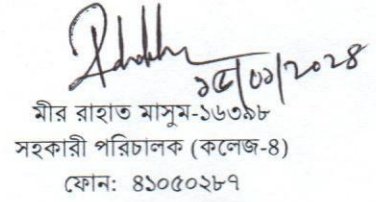 ১৫/০১/২০২৪
মীর রাহাত মাসুম-১৬৩৯৮
সহকারী পরিচালক (কলেজ-৪)
ফোন: ৪১০৫০২৮৭